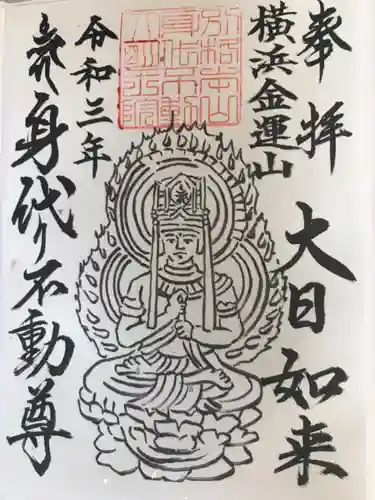 奉拝
横浜金運山
大日如来
令和三年
身代り不動尊